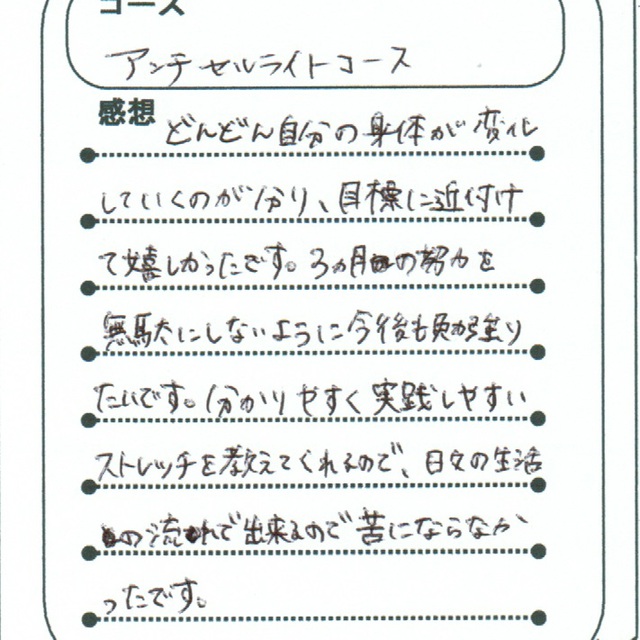 コース
アンチセルライトコース
感想 どんどん自分の身体が変化
していくのが分り、目標に近付け
て嬉しかったです。3ヵ月の努力を
無駄にしないように今後も頑張り
たいです。分かりやすく実践しやすい
ストレッチを教えてくれるので、日々の生活
の流れで出来るので苦にならなか
ったです。